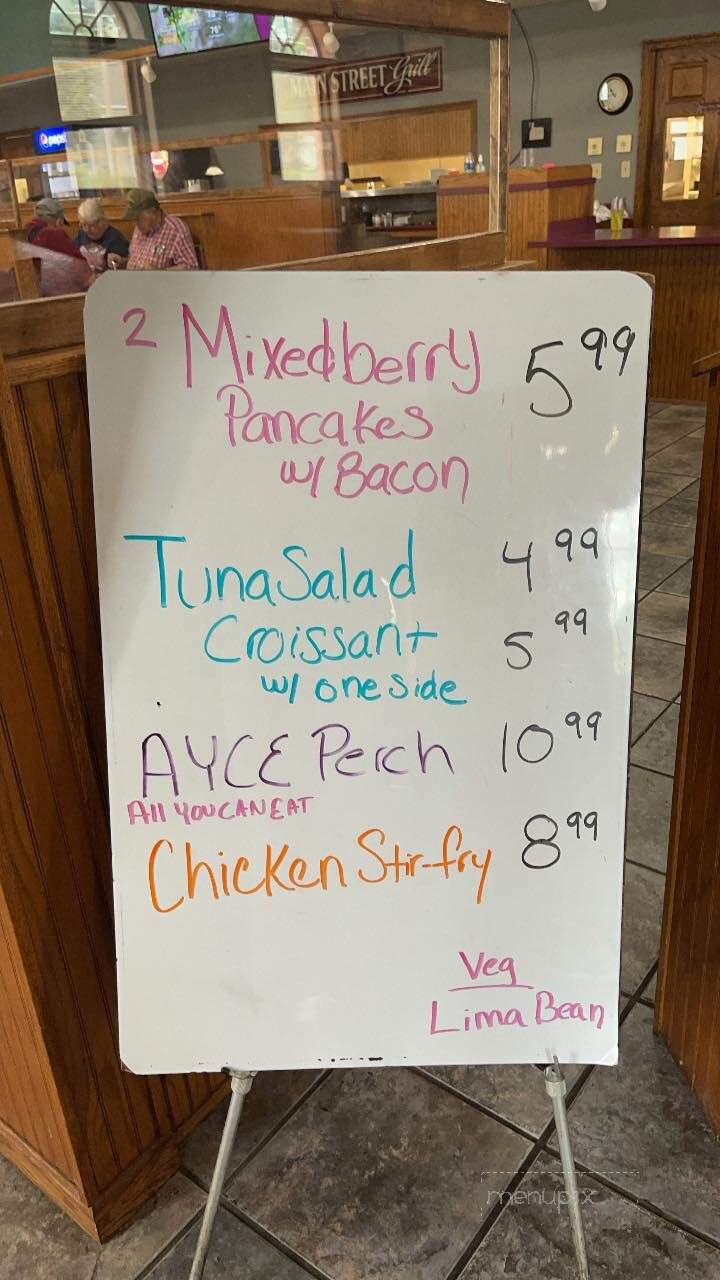 76°
MAIN STREET Grill
pepsi
2 Mixedberry 5.99
Pancakes
w/ Bacon
Tuna Salad 4.99
Croissant 5.99
w/ one side
AYCE Perch 10.99
All YOU CAN EAT
Chicken Stir-fry 8.99
Veg
Lima Bean
menupix